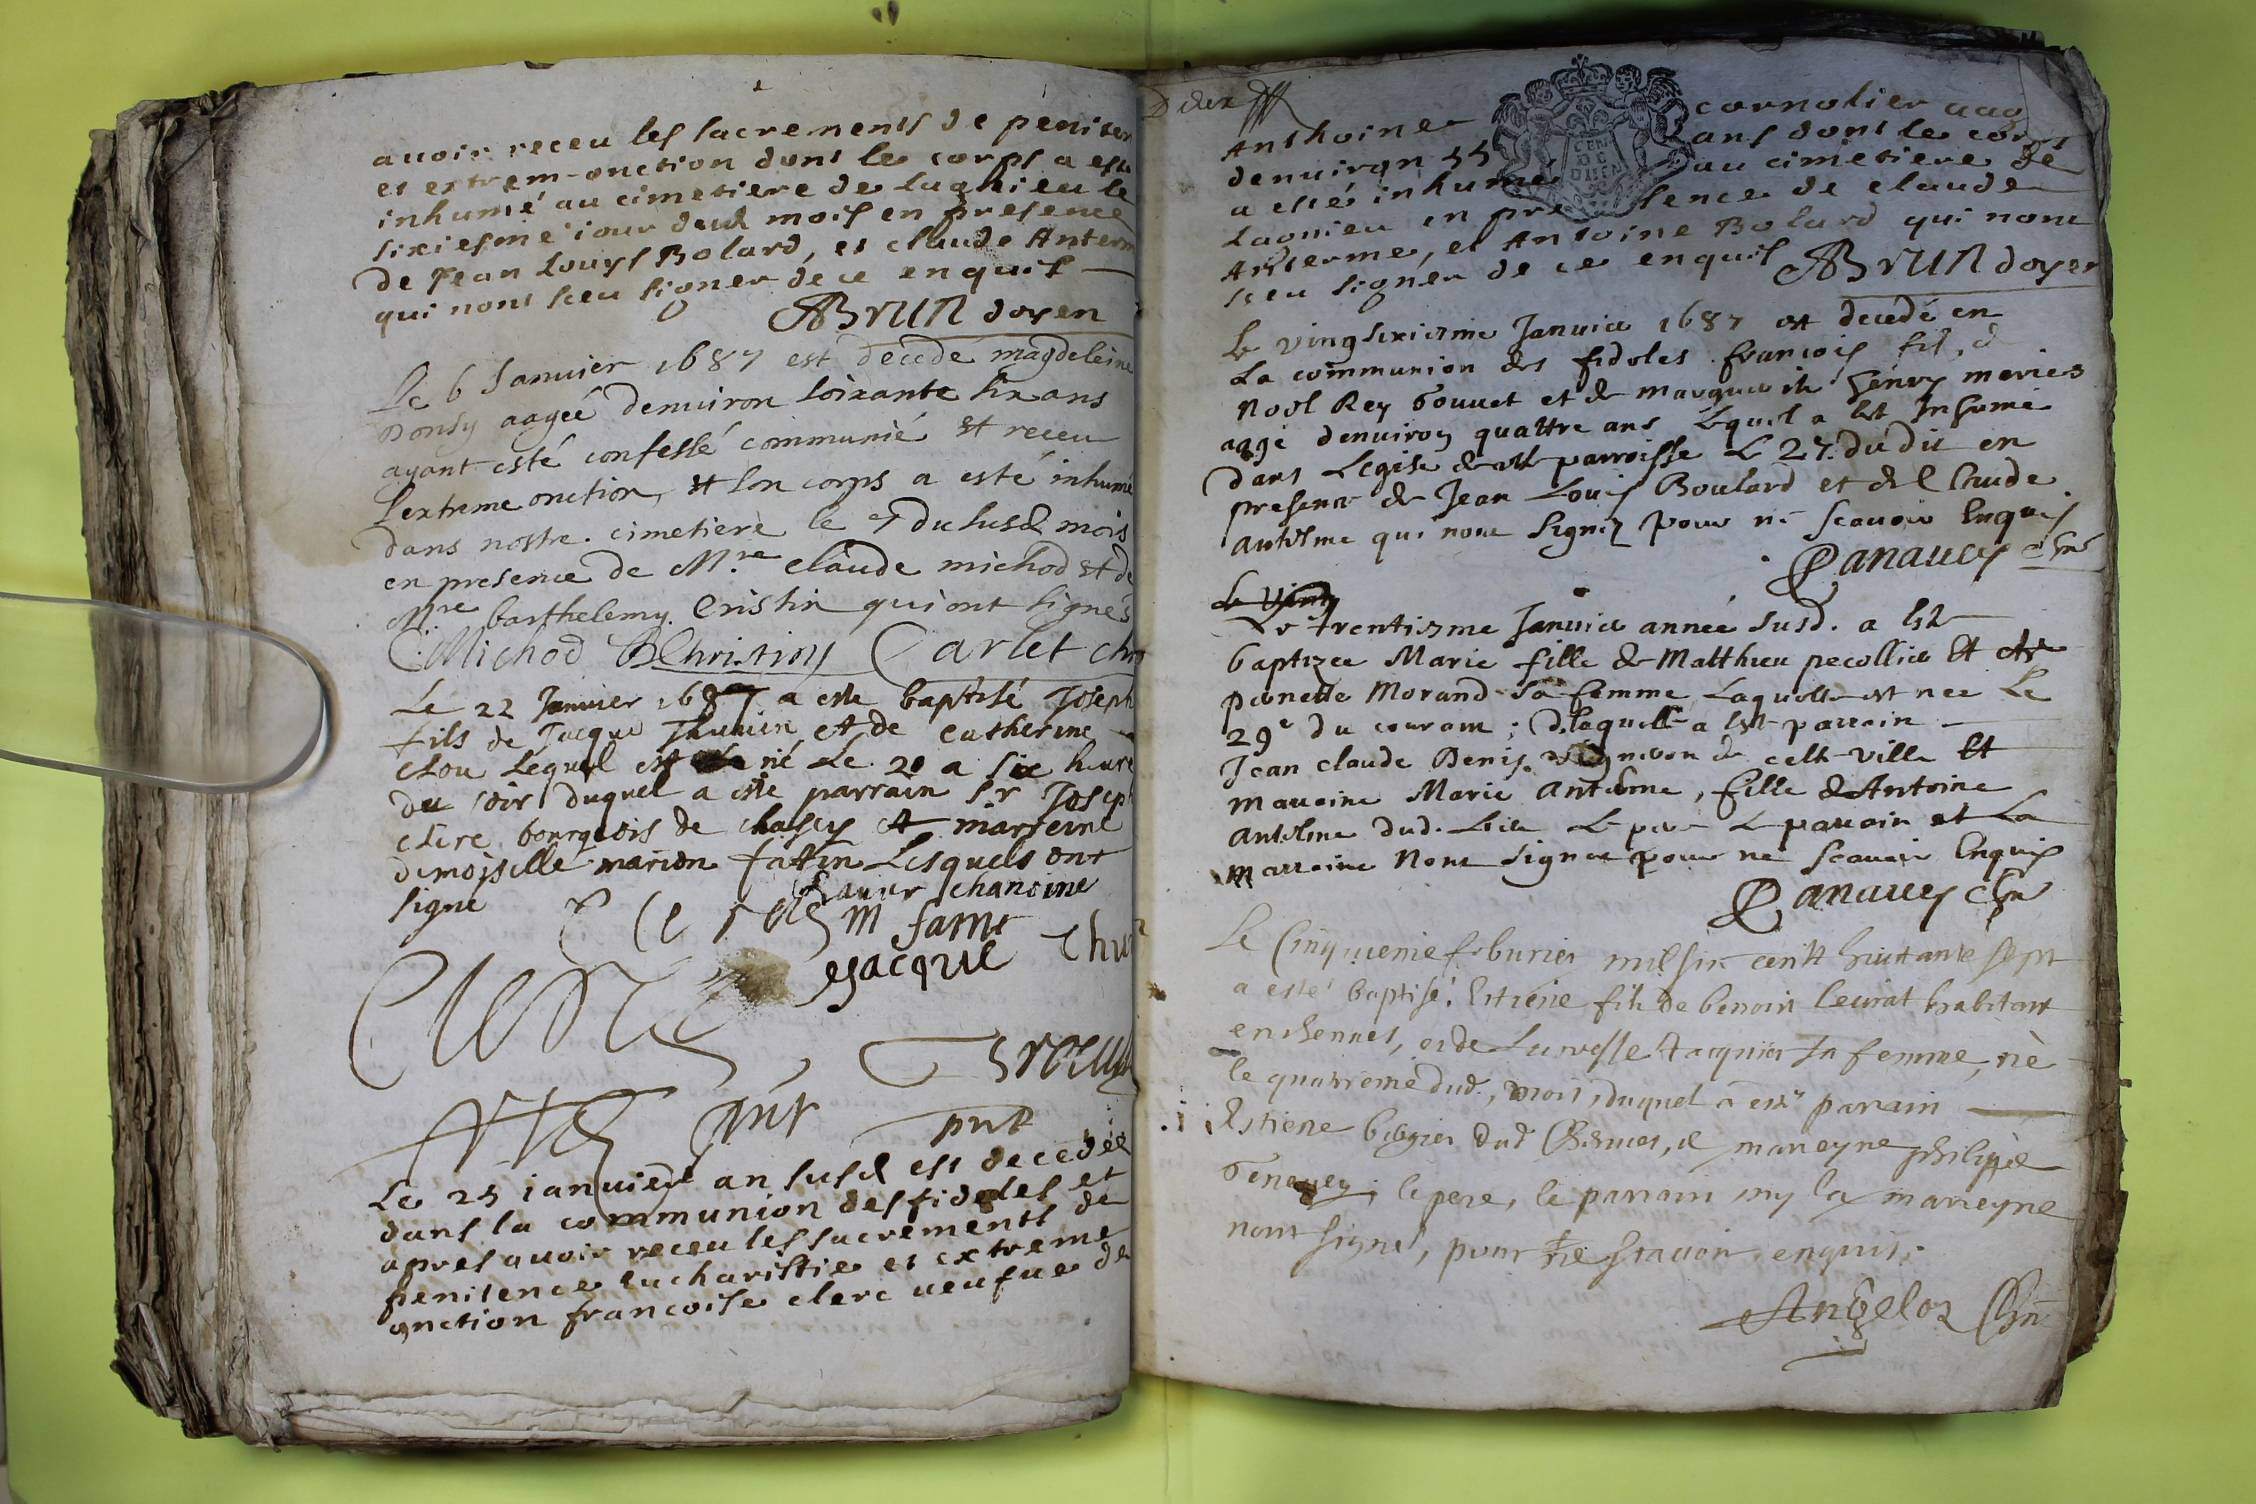 avoir receu les sacrements de peniten
et extrem-onction dont le corps a esté
inhumé au cimetiere de Lagnieu le
sixiesme iour dud mois en presence
de Jean Louys Bolard, et claude Anterm
qui nont sceu signer de ce enquis
ABrun doyen
Le 6 Janvier 1687 est decedé magdeleine
Donsy aagée denuiron soixante six ans
ayant esté confessé communié et receu
l'extreme onction, et son corps a esté inhumé
dans nostre cimetiere le 7 du susd mois
en presence de Mre claude michod et de
Mre barthelemy Cristin qui ont signés
CMichod BChristin Carlet
Le 22 Janvier 1687 a este baptisé Joseph
fils de Jacque Thuvin et de Catherine
clou Lequel est né Le 20 a six heure
du soir duquel a esté parrain Sr Joseph
clere bourgeois de et marreine
demoiselle marion fattin Lesquels ont
signe
chanoine
m
Jacque
pnt pnt
Le 25 ianvier an susd est decedée
dans la communion des fideles et
apres avoir receu les sacrements de
penitence eucharistie et extreme
onction francoise clerc ueufue de
Deux
Anthoine cornolier aag
denuiron 55 ans dont le corps
a esté inhumé au cimetiere de
Lagnieu en presence de claude
Anterme, et Antoine Bolard qui nont
sceu signer de ce enquis ABrun doyen
Le vingsixiesme Janvier 1687 est decedé en
La communion des fidoles françois fils d
Noel Rey bouvet et de marguerite Henry mariés
aagé denuiron quattre ans Lequel a est Inhumé
dans Legise de cette parroisse Le 27 dudit en
presence de Jean Louis Boulard et de Claude
Antelme qui nont signez pour ne scavoir Enquis
Panavey chne
Le vint
Le trentiesme Janvier année susd. a esté
baptizee Marie fille de Matthieu pecollier Et
pernette Morand sa femme Laquelle est nee Le
29e du courant ; de laquelle a est parrain
Jean claude Denis vigneron de cette ville Et
maraine Marie Antelme, fille de Antoine
Antelme dud. Lieu Le pere Le parrain et La
marraine Nont signez pour ne scavoir Enquis
Panavey chne
Le Cinquieme feburier mil six centz huittante sept
a esté baptisé Estiene fils de benoist habitant
en , et de sa femme, né
le quatrieme dud. mois, duquel a esté parrain
Estiene dud , et marreyne philippe
Genevey ; le pere, le parrain ny la marreyne
nont signé, pour ne scavoir, enquis.
Angeloz Chn